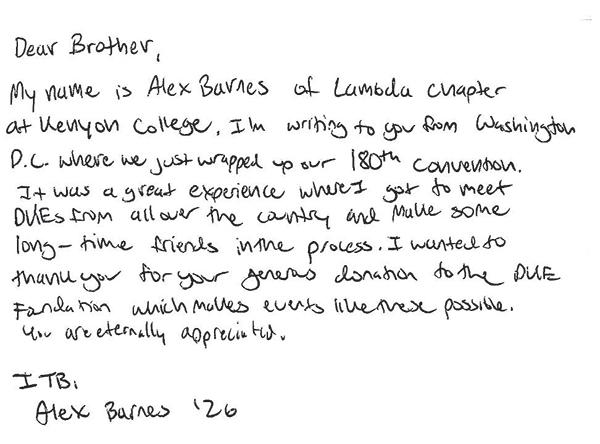 Dear Brother,
My name is Alex Barnes of Lambda Chapter
at Kenyon College. I'm writing to you from Washington
D.C. where we just wrapped up our 180th Convention.
It was a great experience where I got to meet
DKEs from all over the country and make some
long-time friends in the process. I wanted to
thank you for your generous donation to the DKE
Foundation which makes events like these possible.
You are eternally appreciated.
ITB,
Alex Barnes '26